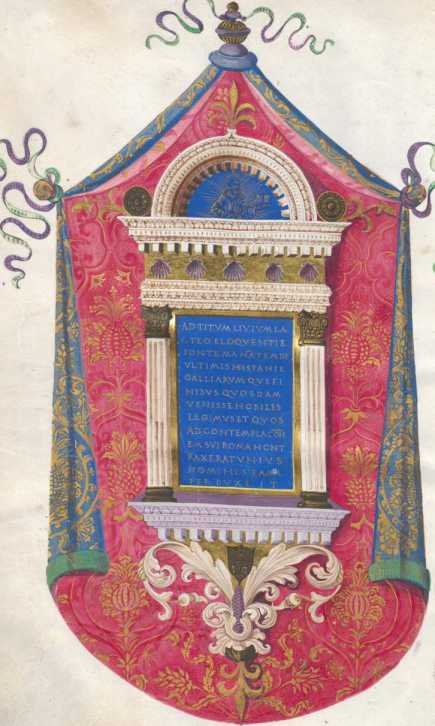 AD TITVM LIVIVM LA
C·TEO ELOQVENTIE
FONTE MANATEM DE
VLTIMIS HISPANIE
GALLIARVM QVE FI
NIBVS QVOSDAM
VENISSE NOBILES
LEGIMVS ET QVOS
AD CONTEMPLACŌN
EM SVI ROMA NON T
RAXERAT VNIVS
HOMINIS FAM
PERDVXIT